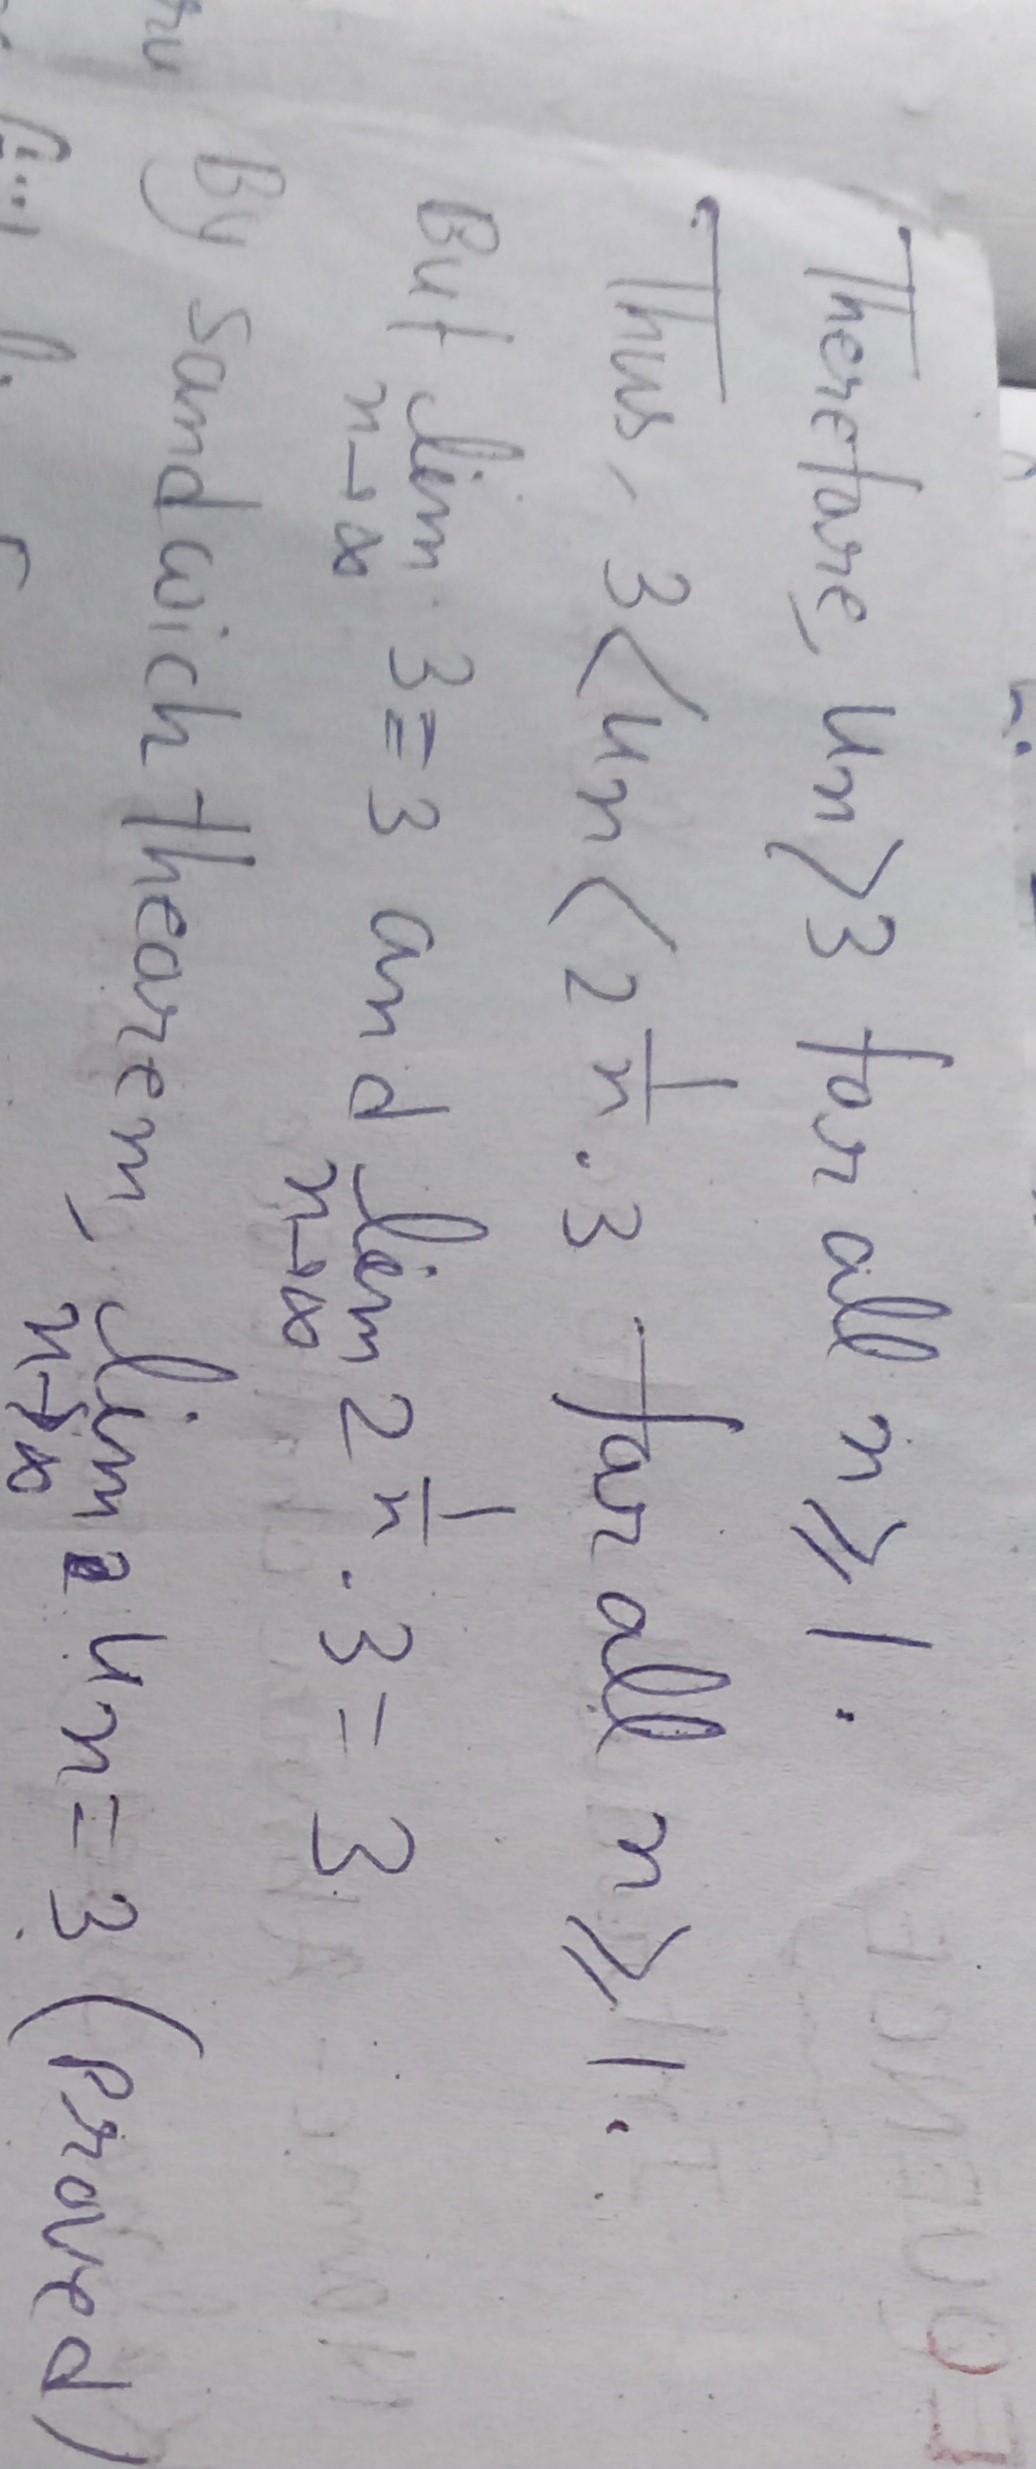 Therefore, un > 3 for all n ⩾ 1.
Thus, 3 < un < 2^{1/n}.3 for all n ⩾ 1.
But lim n→∞ 3 = 3 and lim n→∞ 2^{1/n}.3 = 3
By sandwich theorem, lim n→∞ un = 3 (Proved)